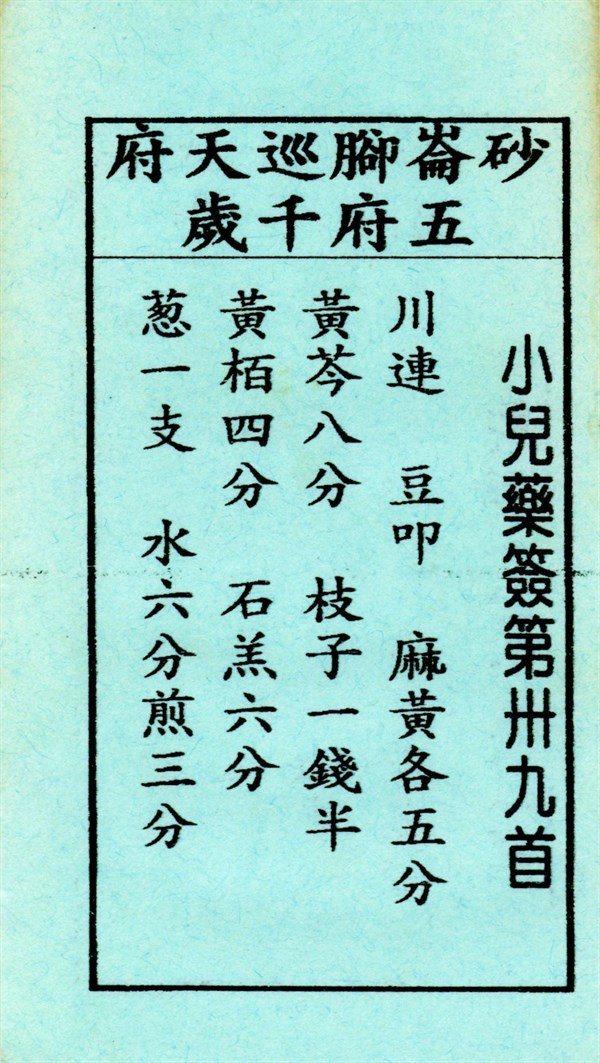 砂崙腳巡天府
五府千歲
小兒藥簽第卅九首
川連 豆叩 麻黃各五分
黃芩八分 枝子一錢半
黃栢四分 石羔六分
葱一支 水六分煎三分